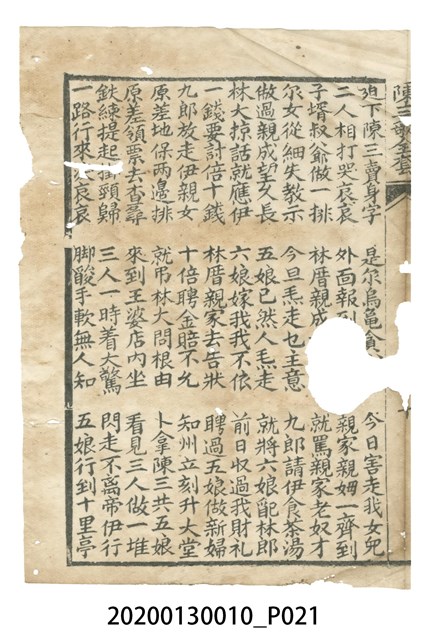 陳三歌全
迫下陳三賣身字 是尔烏龜貪 今日害走我女兒
二人相打哭哀哀 外面報到 親家親姆一齊到
子壻叔爺做一排 林厝親成 就罵親家老奴才
尔女從細失教示 今旦焏走乜主意 九郎請伊食茶湯
做過親成望久長 五娘已然人焏走 就將六娘配林郎
林大掠話就應伊 六娘嫁我我不依 前日收過我財礼
一錢要討倍十錢 林厝親家去告狀 聘過五娘做新婦
九郎放走伊親女 十倍聘金賠不允 知州立刻升大堂
原差地保两邊排 就吊林大問根由 卜拿陳三共五娘
原差領票去查尋 來到王婆店內坐 看見三人做一堆
鉄練提起掛頸歸 三人一時着大驚 閃走不离帝伊行
一路行來 哀哀 脚酸手軟無人知 五娘行到十里亭
20200130010_P021